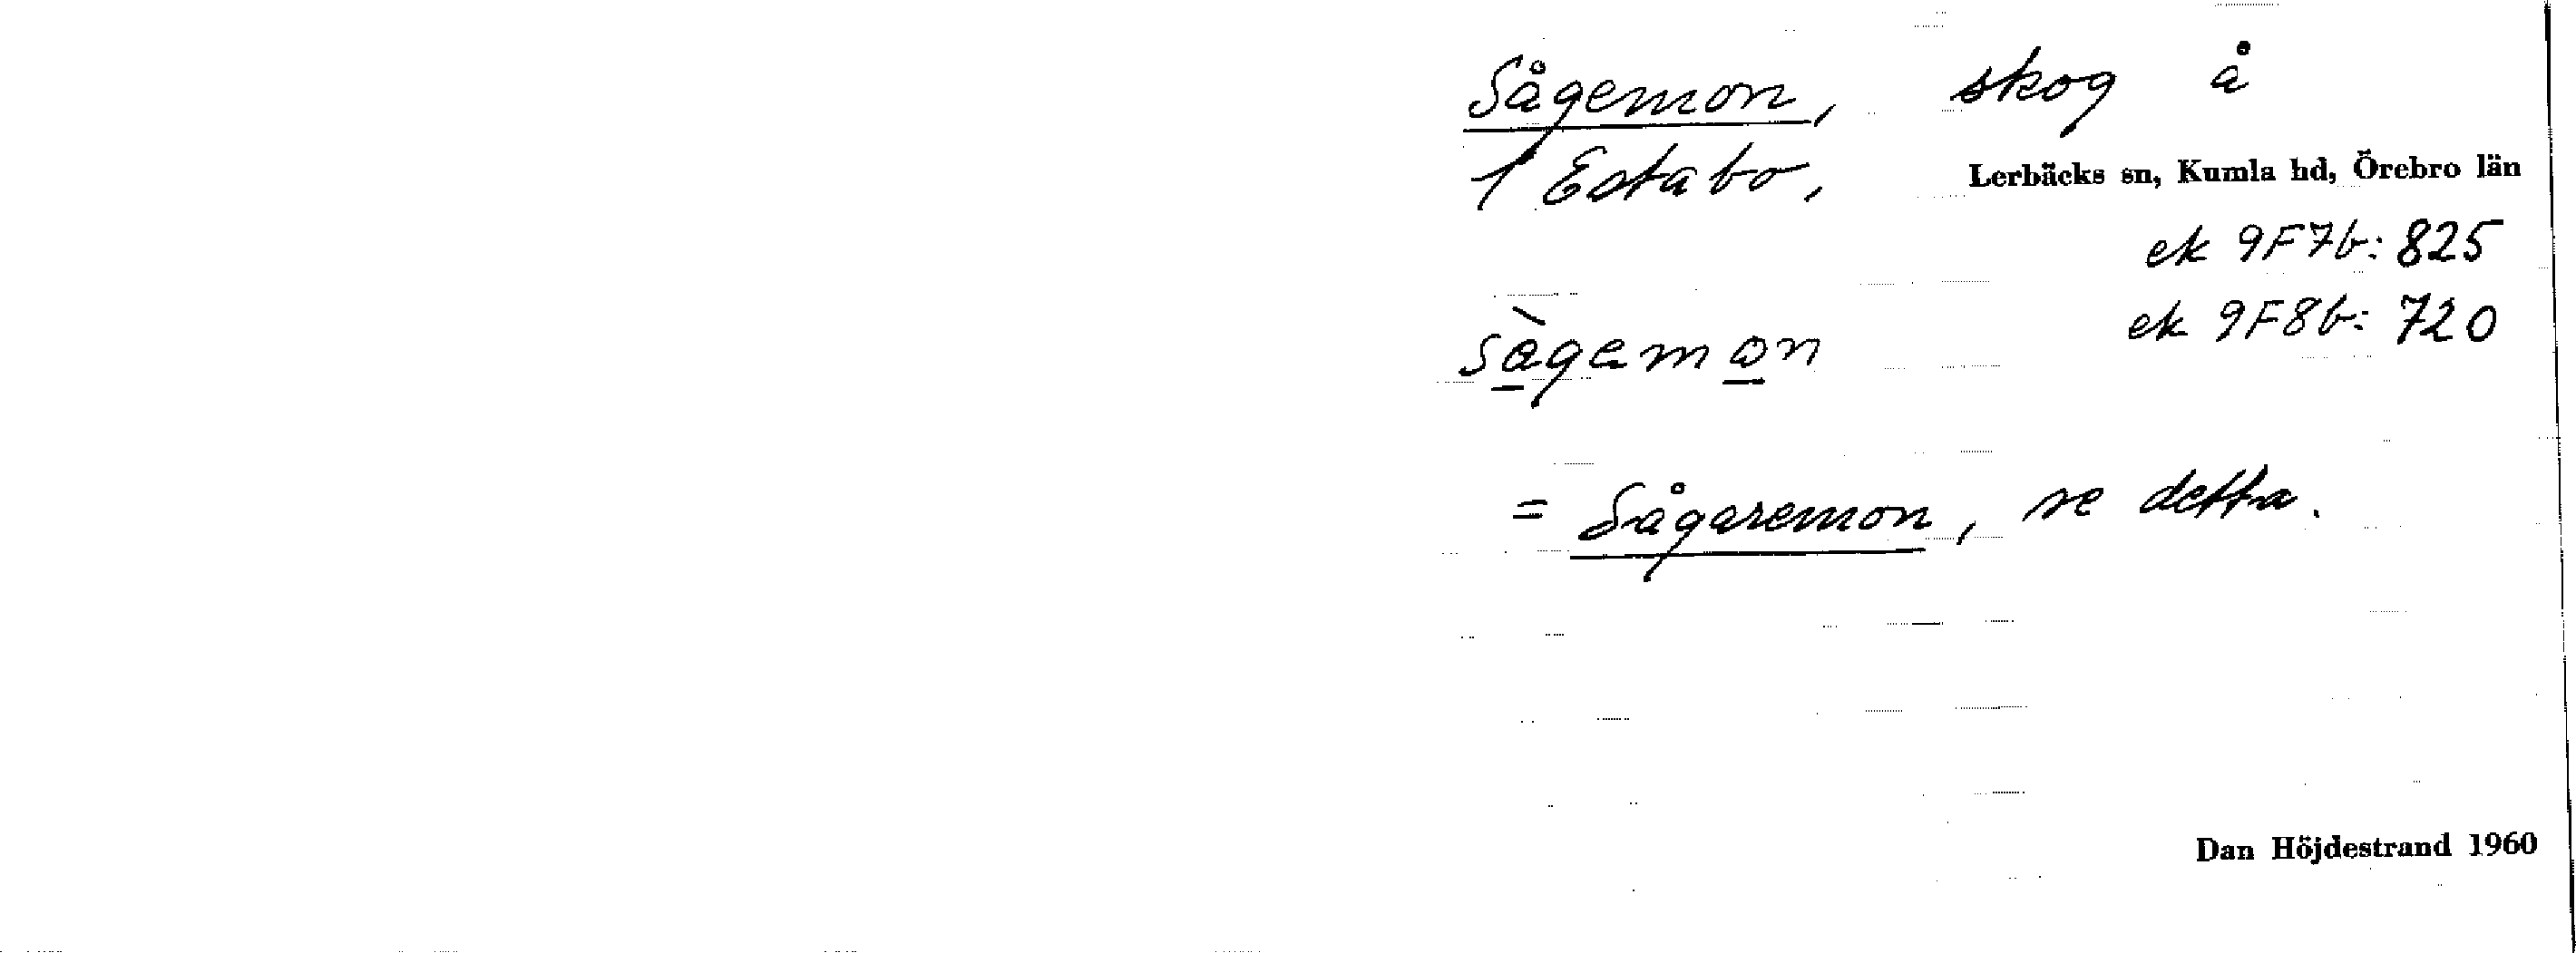 Sågemon, skog å
1 Estabo, Lerbäcks sn, Kumla hd, Örebro län
ek 9F7b: 825
ek 9F8b: 720
sàgemon
= Sågaremon, se detta.
Dan Höjdestrand 1960